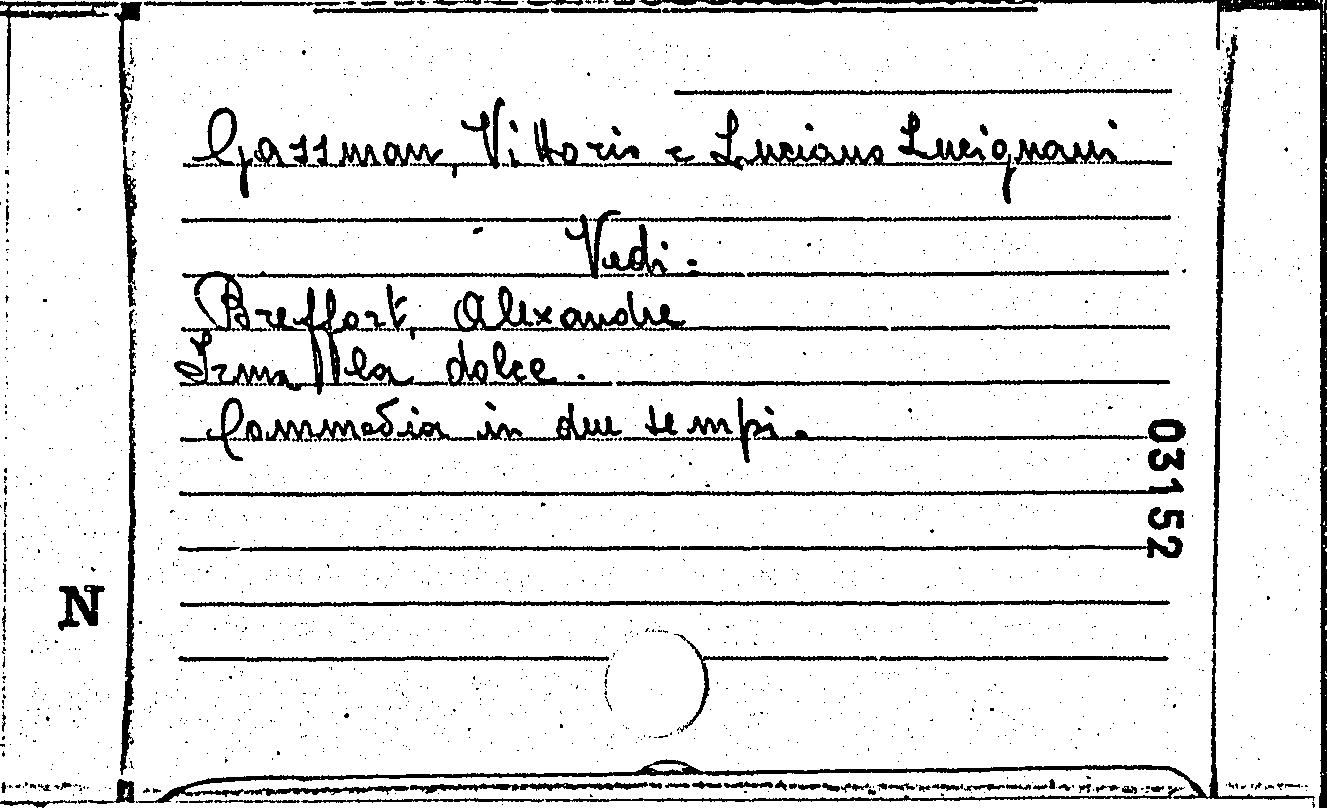 Gassman, Vittorio e Luciano Lucignani
Vedi:
Breffort, Alexandre
Irma la dolce.
Commedia in due tempi.
03152
N